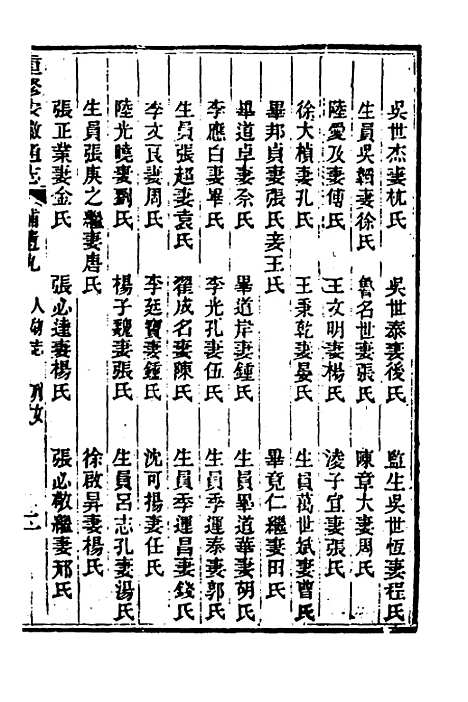 吳世杰妻枕氏　吳世泰妻後氏　監生吳世恆妻程氏
生員吳韜妻徐氏　魯名世妻張氏　陳章大妻周氏
陸愛及妻傅氏　王文明妻楊氏　淩子宜妻張氏
徐大楨妻孔氏　王秉乾妻晏氏　生員萬世斌妻曾氏
畢邦貞妻張氏妾王氏　畢竟仁繼妻田氏
畢道卓妻余氏　畢道岸妻鍾氏　生員畢道華妻胡氏
李應白妻畢氏　李光孔妻伍氏　生員季運泰妻郭氏
生員張超妻袁氏　翟成名妻陳氏　生員季運昌妻錢氏
李文良妻周氏　李廷寶妻鍾氏　沈可揚妻任氏
陸光曉妻劉氏　楊子巍妻張氏　生員呂志孔妻湯氏
生員張庚之繼妻唐氏　徐啟昇妻楊氏
張正業妻金氏　張必達妻楊氏　張必敬繼妻邢氏
重修安徽通志　補遺九　人物志　列女　二